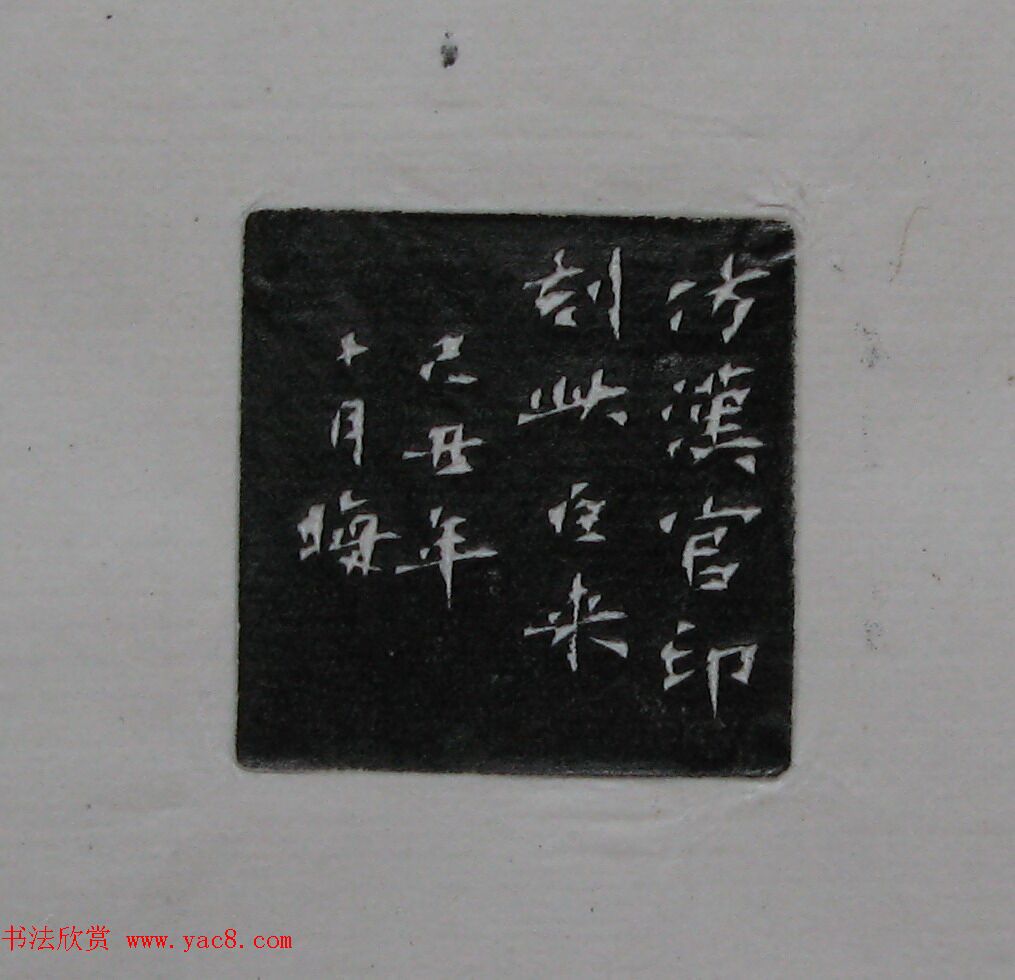 仿漢官印
刻此 来
己丑年
十月晦
书法欣赏 www.yac8.com